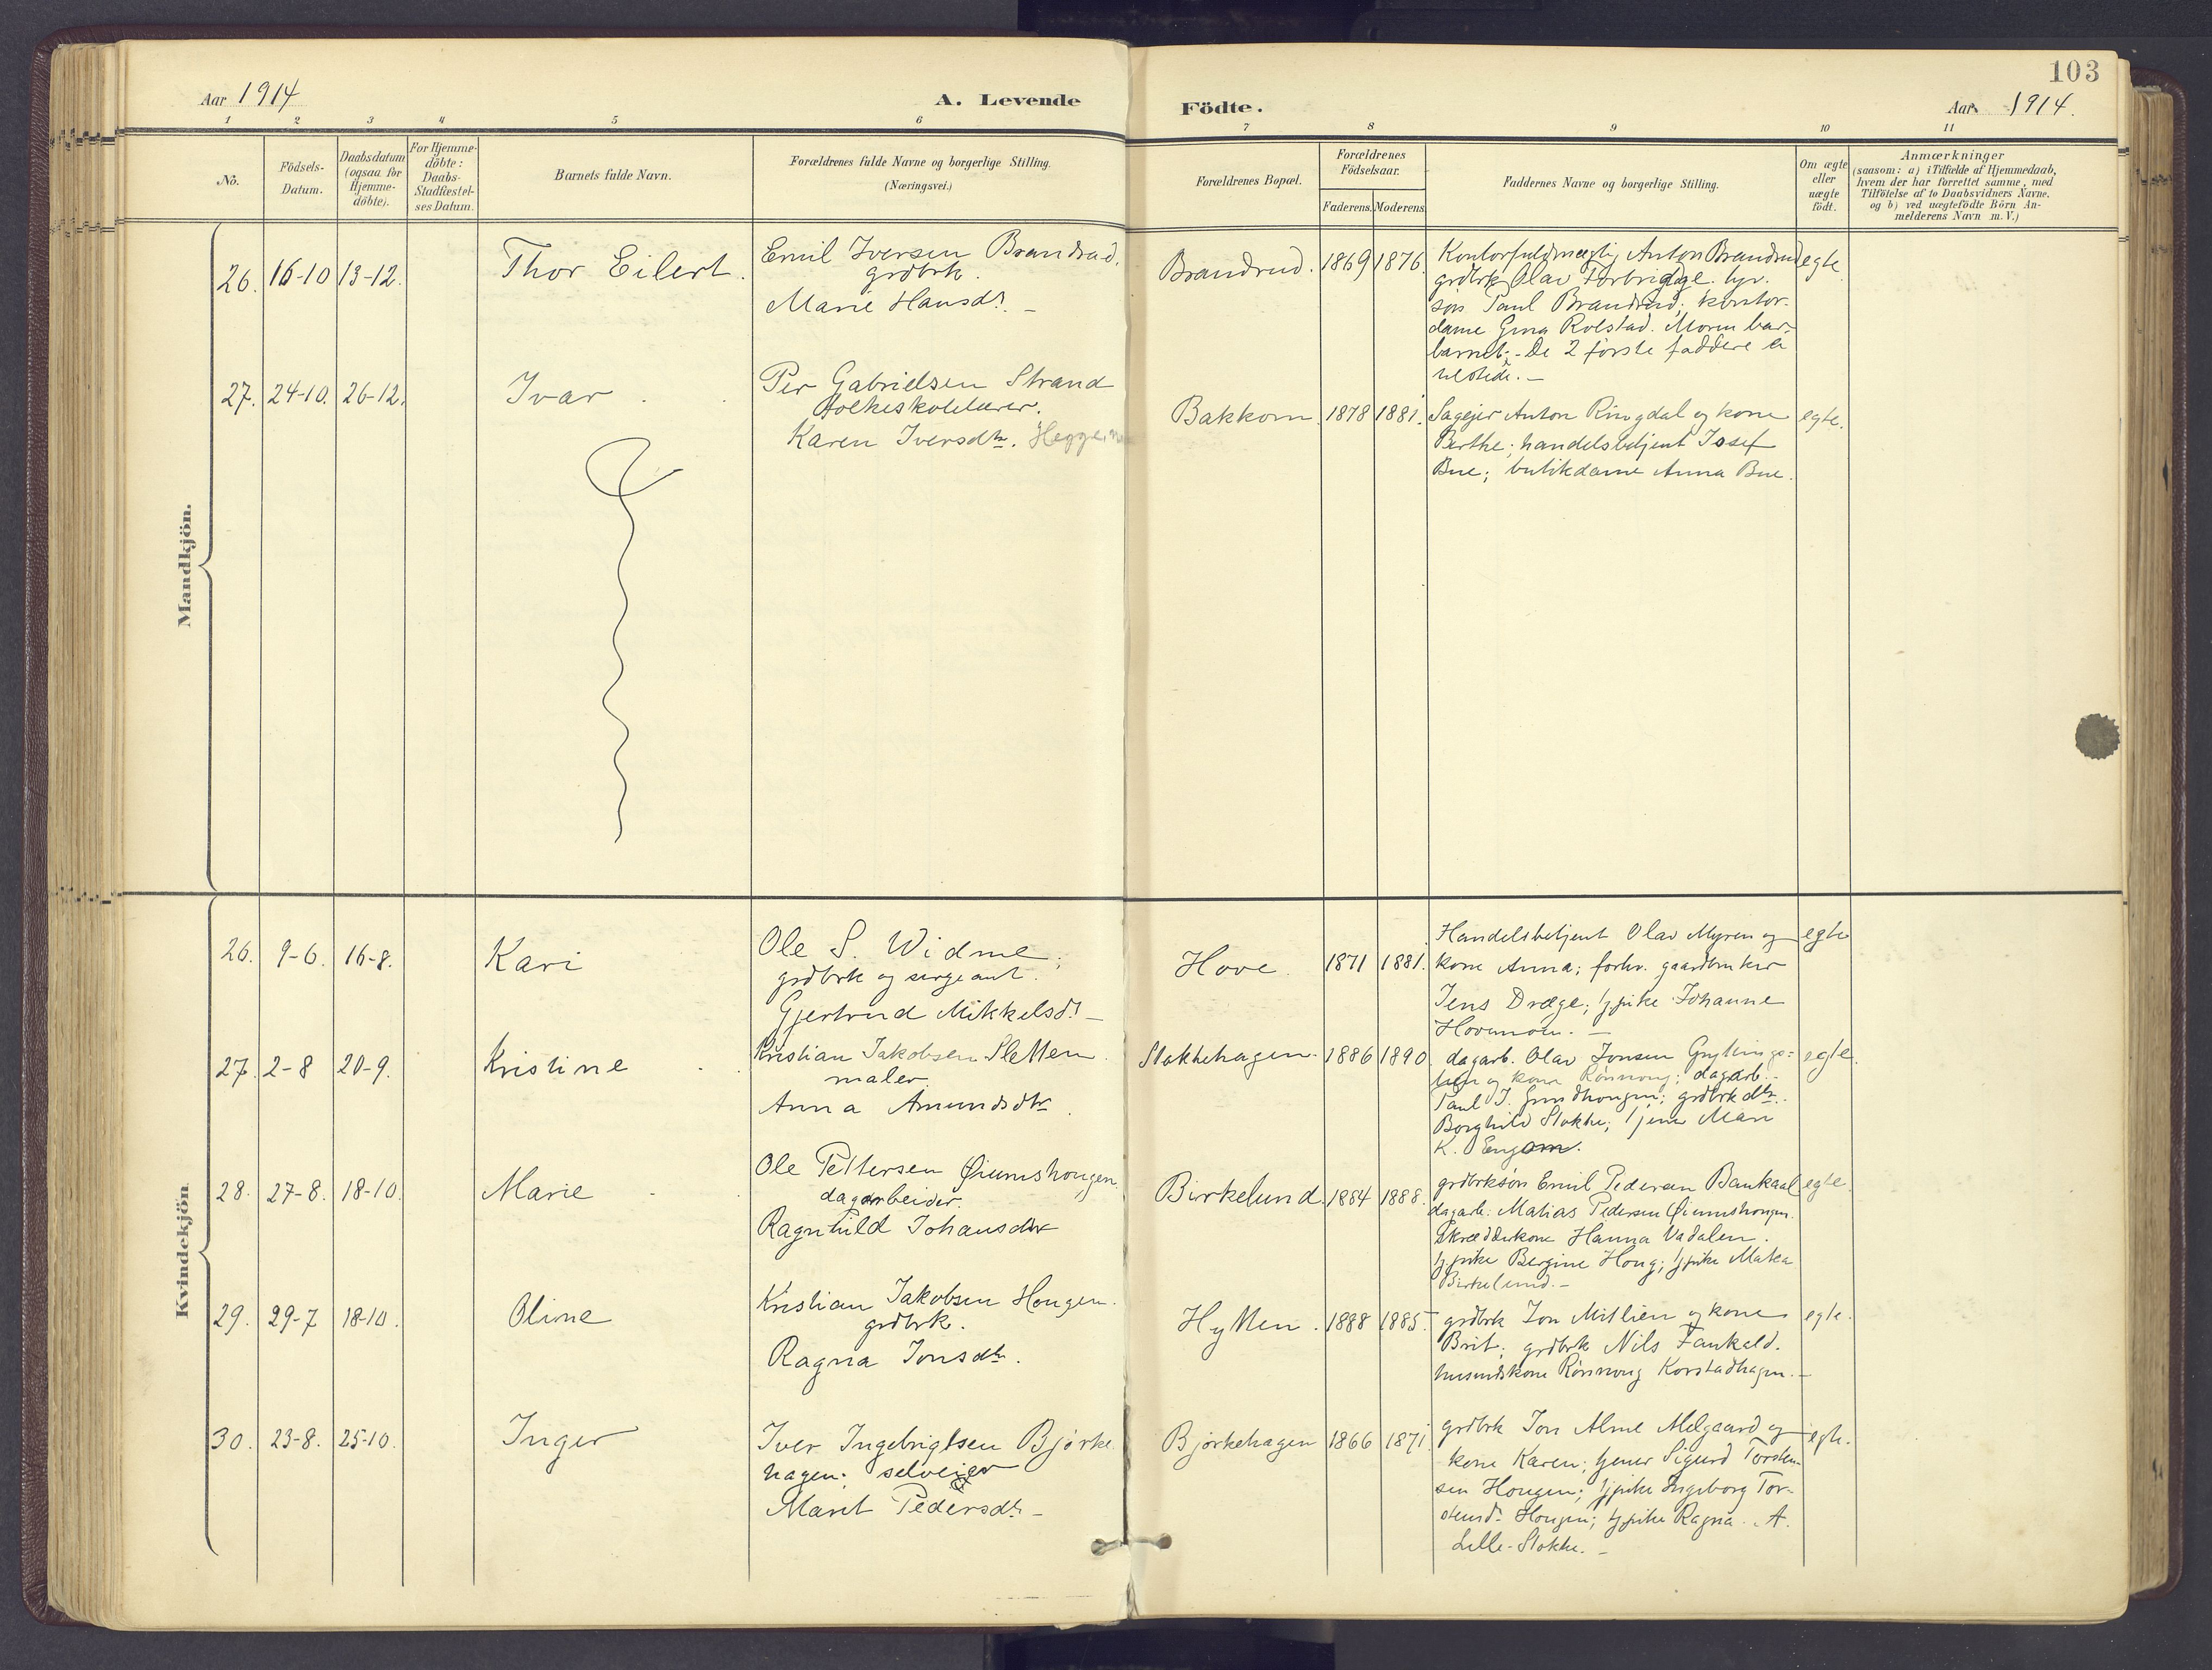 103
Aar 1914
A. Levende
Födte.
Aar 1914.
1 2 3 4 5 6 7 8 9 10 11
No.
Födsels-
Datum.
Daabsdatum
(ogsaa for
Hjemme-
döbte).
For Hjemme-
döbte:
Daabs-
Stadfæstel-
ses Datum.
Barnets fulde Navn.
Forældrenes fulde Navne og borgerlige Stilling.
(Næringsvei.)
Forældrenes Bopæl.
Forældrenes
Födselsaar.
Faderens. Moderens.
Faddernes Navne og borgerlige Stilling.
Om ægte
eller
uægte
født.
Anmærkninger
(saasom: a) i Tilfælde af Hjemmedaab,
hvem der har forrettet samme, med
Tilföielse af to Daabsvidners Navne.
og b) ved uægtefödte Börn An-
melderens Navn m. V.)
Mandkjön.
26. 16-10 13-12. Thor Eilert.
Emil Iversen Brandrud.
grdbrk.
Marie Hansdr. -
Brandrud. 1869 1876.
Kontorfuldmægtig Anton Brandrud
grdbrk Olav Forbrigdge. tyv.
søn Paul Brandrud; kontor-
dame Gina Rolstad. Moren bar
barnet; - De 2 første faddere er
ilestede. -
egte
27. 24-10. 26-12. Ivar
Per Gabrielsen Strand
folkeskolelærer.
Karen Iversdtr. Hegge
Bakkom. 1878 1881.
Sageier Anton Ringdal og kone
Berthe; handelsbetjent Josef
Bue; butikdame Anna Bue.
egte.
Kvindekjön
26. 9-6. 16-8. Kari
Ole S. Widme;
grdbrk og sergeant.
Gjertrud Mikkelsdr. -
Hove. 1871 1881.
Handelsbetjent Olav Myren og
kone Anna; forhv. gaardbruker
Jens Dræge; tjpike Johanne
Hovemoen. -
egte
27. 2-8 20-9. Kristine
Kristian Jakobsen Sletten.
maler.
Anna Amundsdtr.
Stokkehagen. 1886 1890
dagarb. Olav Jonsen
og kone Rønnoug; dagarb.
Paul J. ; grdbrkdtr.
Borghild Stokke; tjener Mari
K. Engom.
egte.
28. 27-8. 18-10. Marie
Ole Pettersen Øiumshougen
dagarbeider.
Ragnhild Johansdtr
Birkelund. 1884 1888.
grdbrksøn Emil Pedersen Baukaal
dagarb. Matias Pedersen Øiumshougen.
Skrædderkone Hanna Vadalen.
tjpike Bergine Houg; tjpike Matea
Birkelund. -
egte.
29. 29-7 18-10. Oline
Kristian Jakobsen Hougen.
grdbrk.
Ragna Jonsdtr.
Hytten. 1888 1885.
grdbrk Jon Mitlien og kone
Brit; grdbrk Nils Faukald.
husmdskone Rønnoug Korstadhagen. -
egte.
30. 23-8. 25-10. Inger
Iver Ingebrigtsen Bjørke
hagen; selveier
Marit Pedersdtr. -
Bjørkehagen 1866 1871
grdbrk Jon Alme Melgaard og
kone Karen; tjener Sigurd Torsten-
sen Hougen; tjpike Ingeborg Tor-
stensdr. Hougen; tjpike Ragna A.
Lille-Stokke. -
egte.